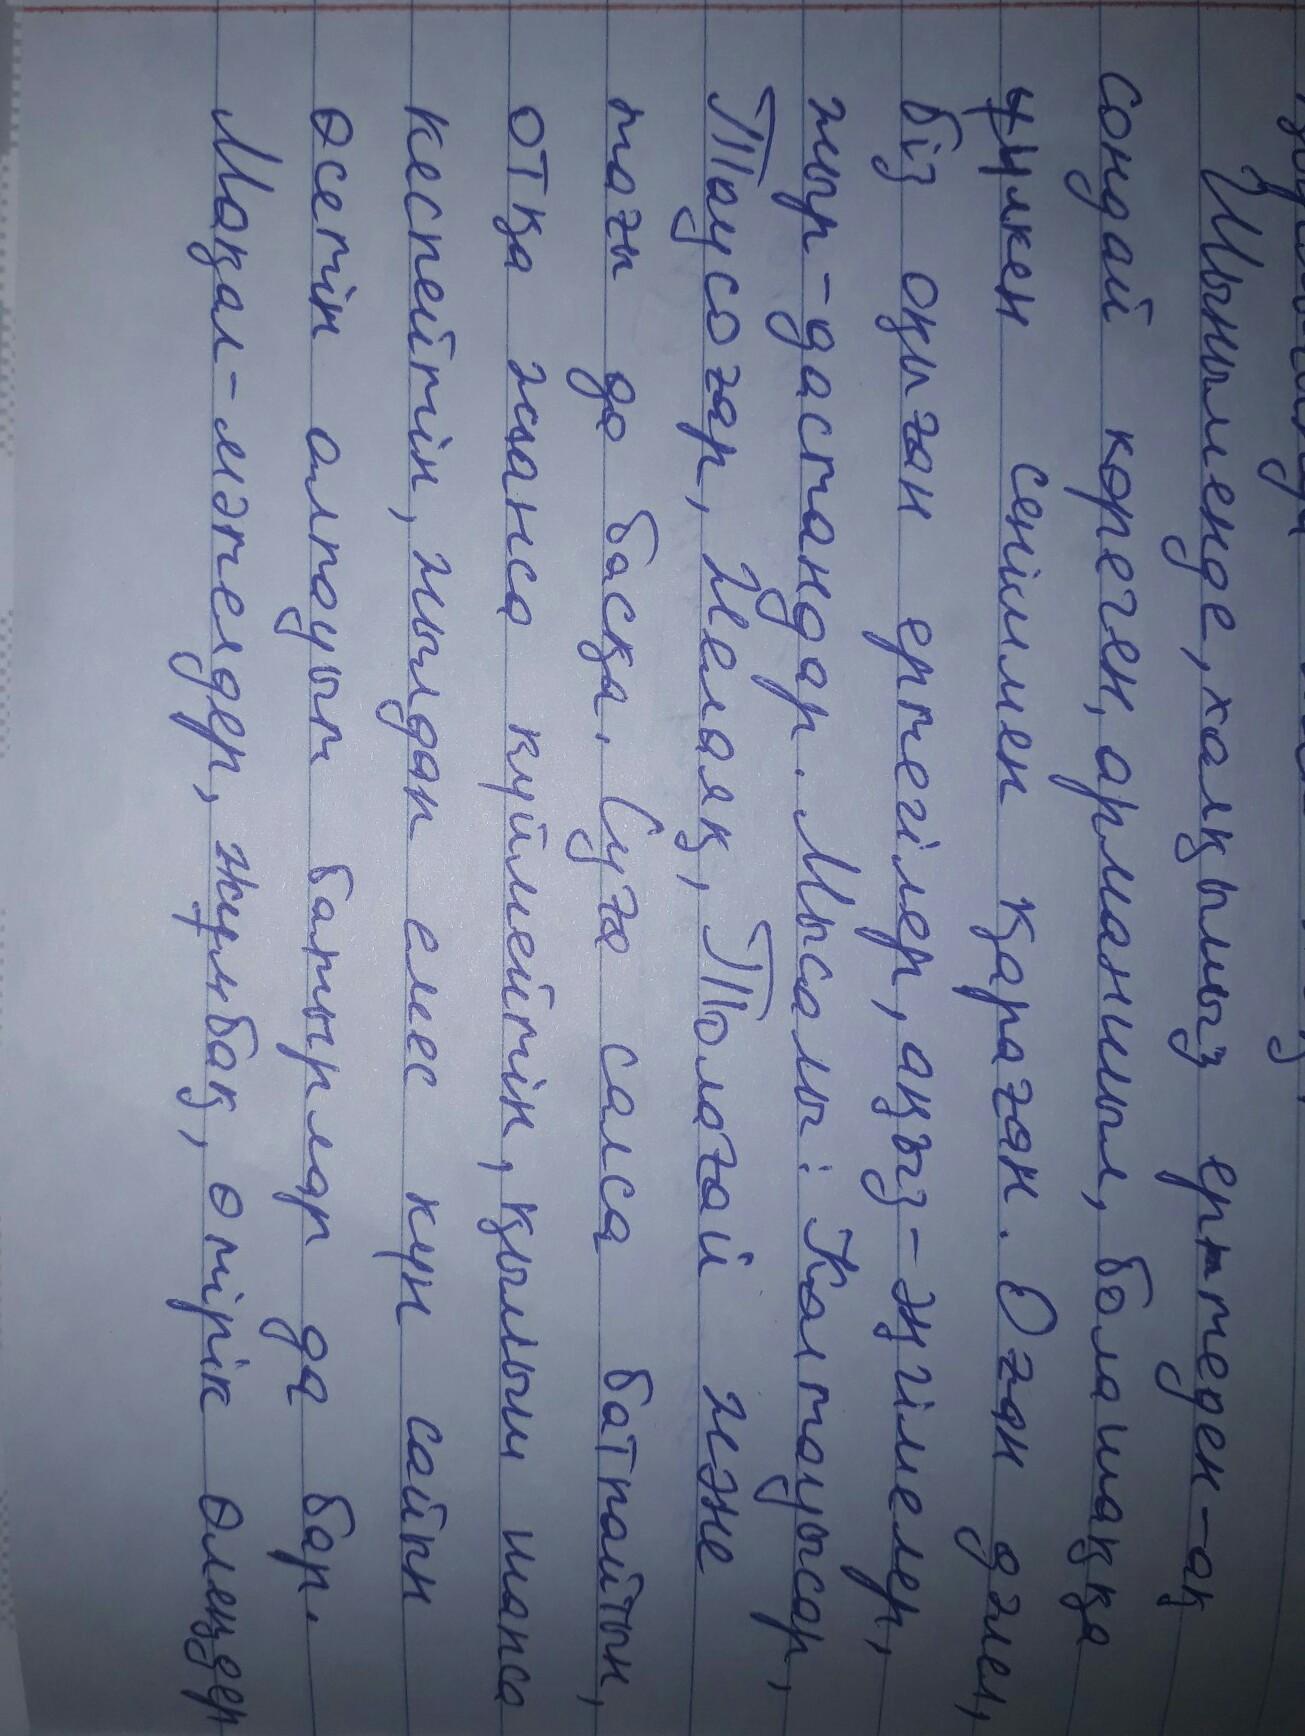 Шыныменде, халқымыз ертеден-ақ
сондай көреген, арманшыл, болашаққа
үлкен сеніммен қараған. Оған дәлел,
біз оқыған ертегілер, аңыз-әңгімелер,
жыр-дастандар. Мысалы: Көлтауысар,
Таусоғар, Желаяқ, Толағай және
тағы да басқа. Суға салса батпайтын,
отқа жанса күймейтін, қылыш шапса
кеспейтін, жылдан емес күн сайын
өсетін алпауыт батырлар да бар.
Мақал-мәтелдер, жұмбақ, өтірік өлеңдер